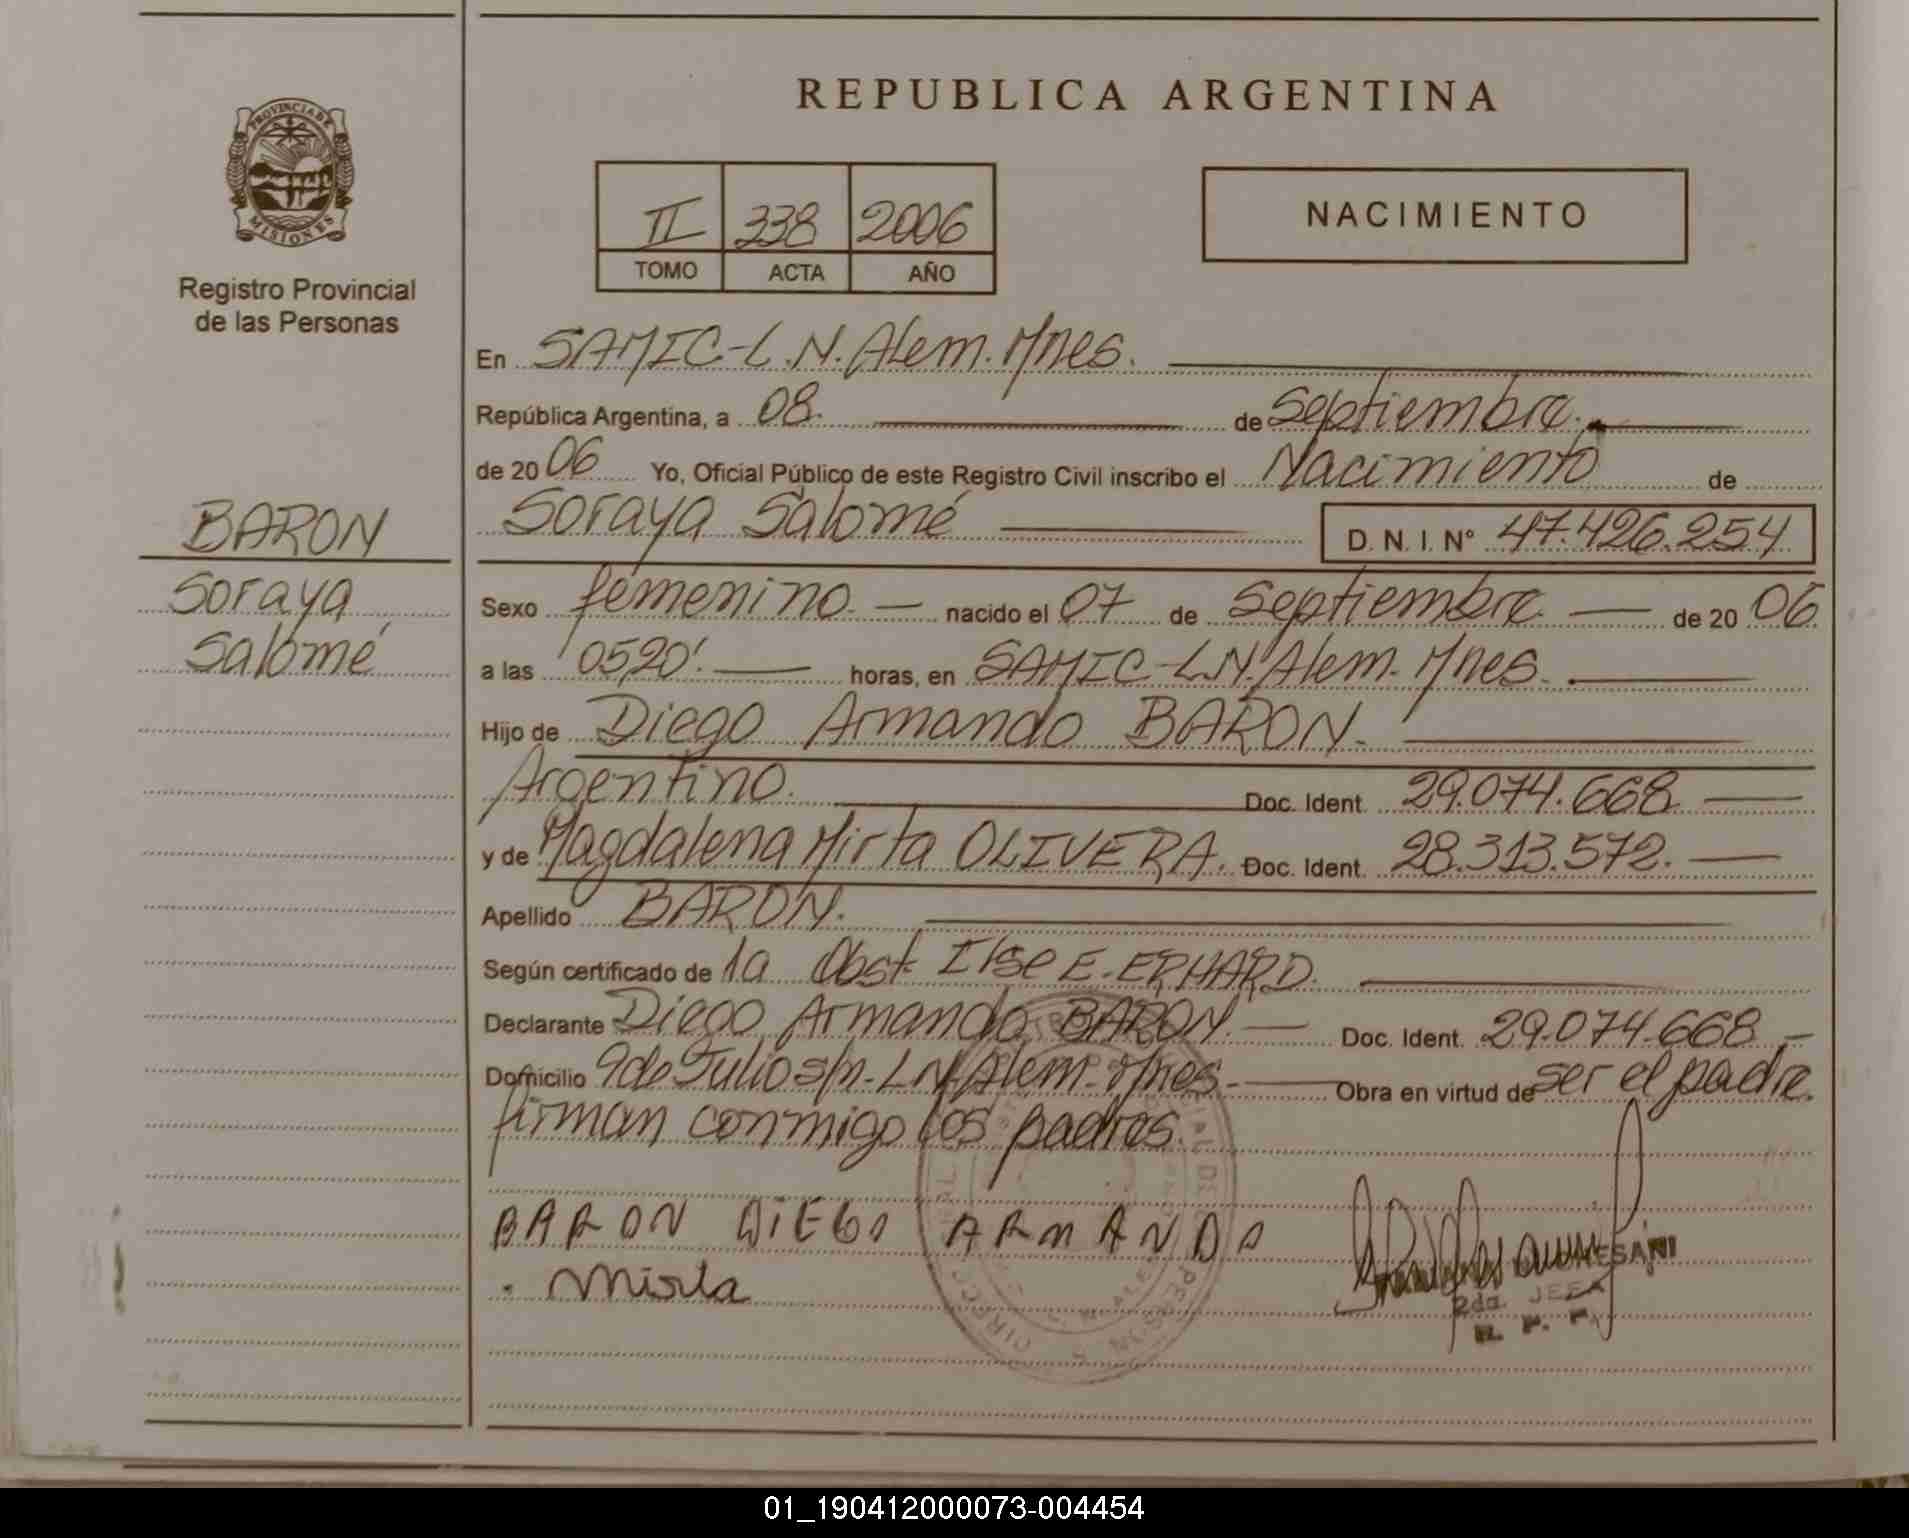 REPUBLICA ARGENTINA
PROVINCIA DE
MISIONES
Registro Provincial
de las Personas
II 338 2006
TOMO ACTA AÑO
NACIMIENTO
En SAMIC-L.N.Alem.Mnes.
República Argentina, a 08. de Septiembre.
de 20 06 Yo, Oficial Público de este Registro Civil inscribo el Nacimiento de
Soraya Salomé D. N. I. N° 47.426.254
BARON
Soraya
Salomé
Sexo femenino. nacido el 07 de Septiembre de 20 06
a las 0520'. horas, en SAMIC-L.N.Alem.Mnes.
Hijo de Diego Armando BARON.
Argentino. Doc. Ident. 29.074.668
y de Magdalena Mirta OLIVERA. Doc. Ident. 28.313.572.
Apellido BARON.
Según certificado de la Obst. Ilse E. ERHARD.
Declarante Diego Armando BARON. Doc. Ident. 29.074.668
Domicilio 9 de Julio s/n. L.N.Alem.Mnes. Obra en virtud de ser el padre.
firman conmigo los padres.
BARON DiEGO ARMANDO
Mirta
2da. JEFA
R. P. P.
01_190412000073-004454